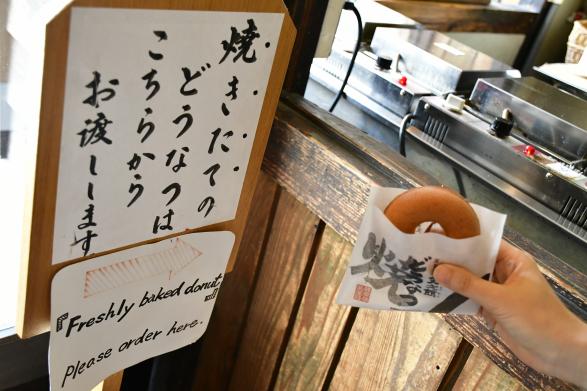 焼きたての
どうなつは
こちらから
お渡しします
Freshly baked donut
please order here.
焼